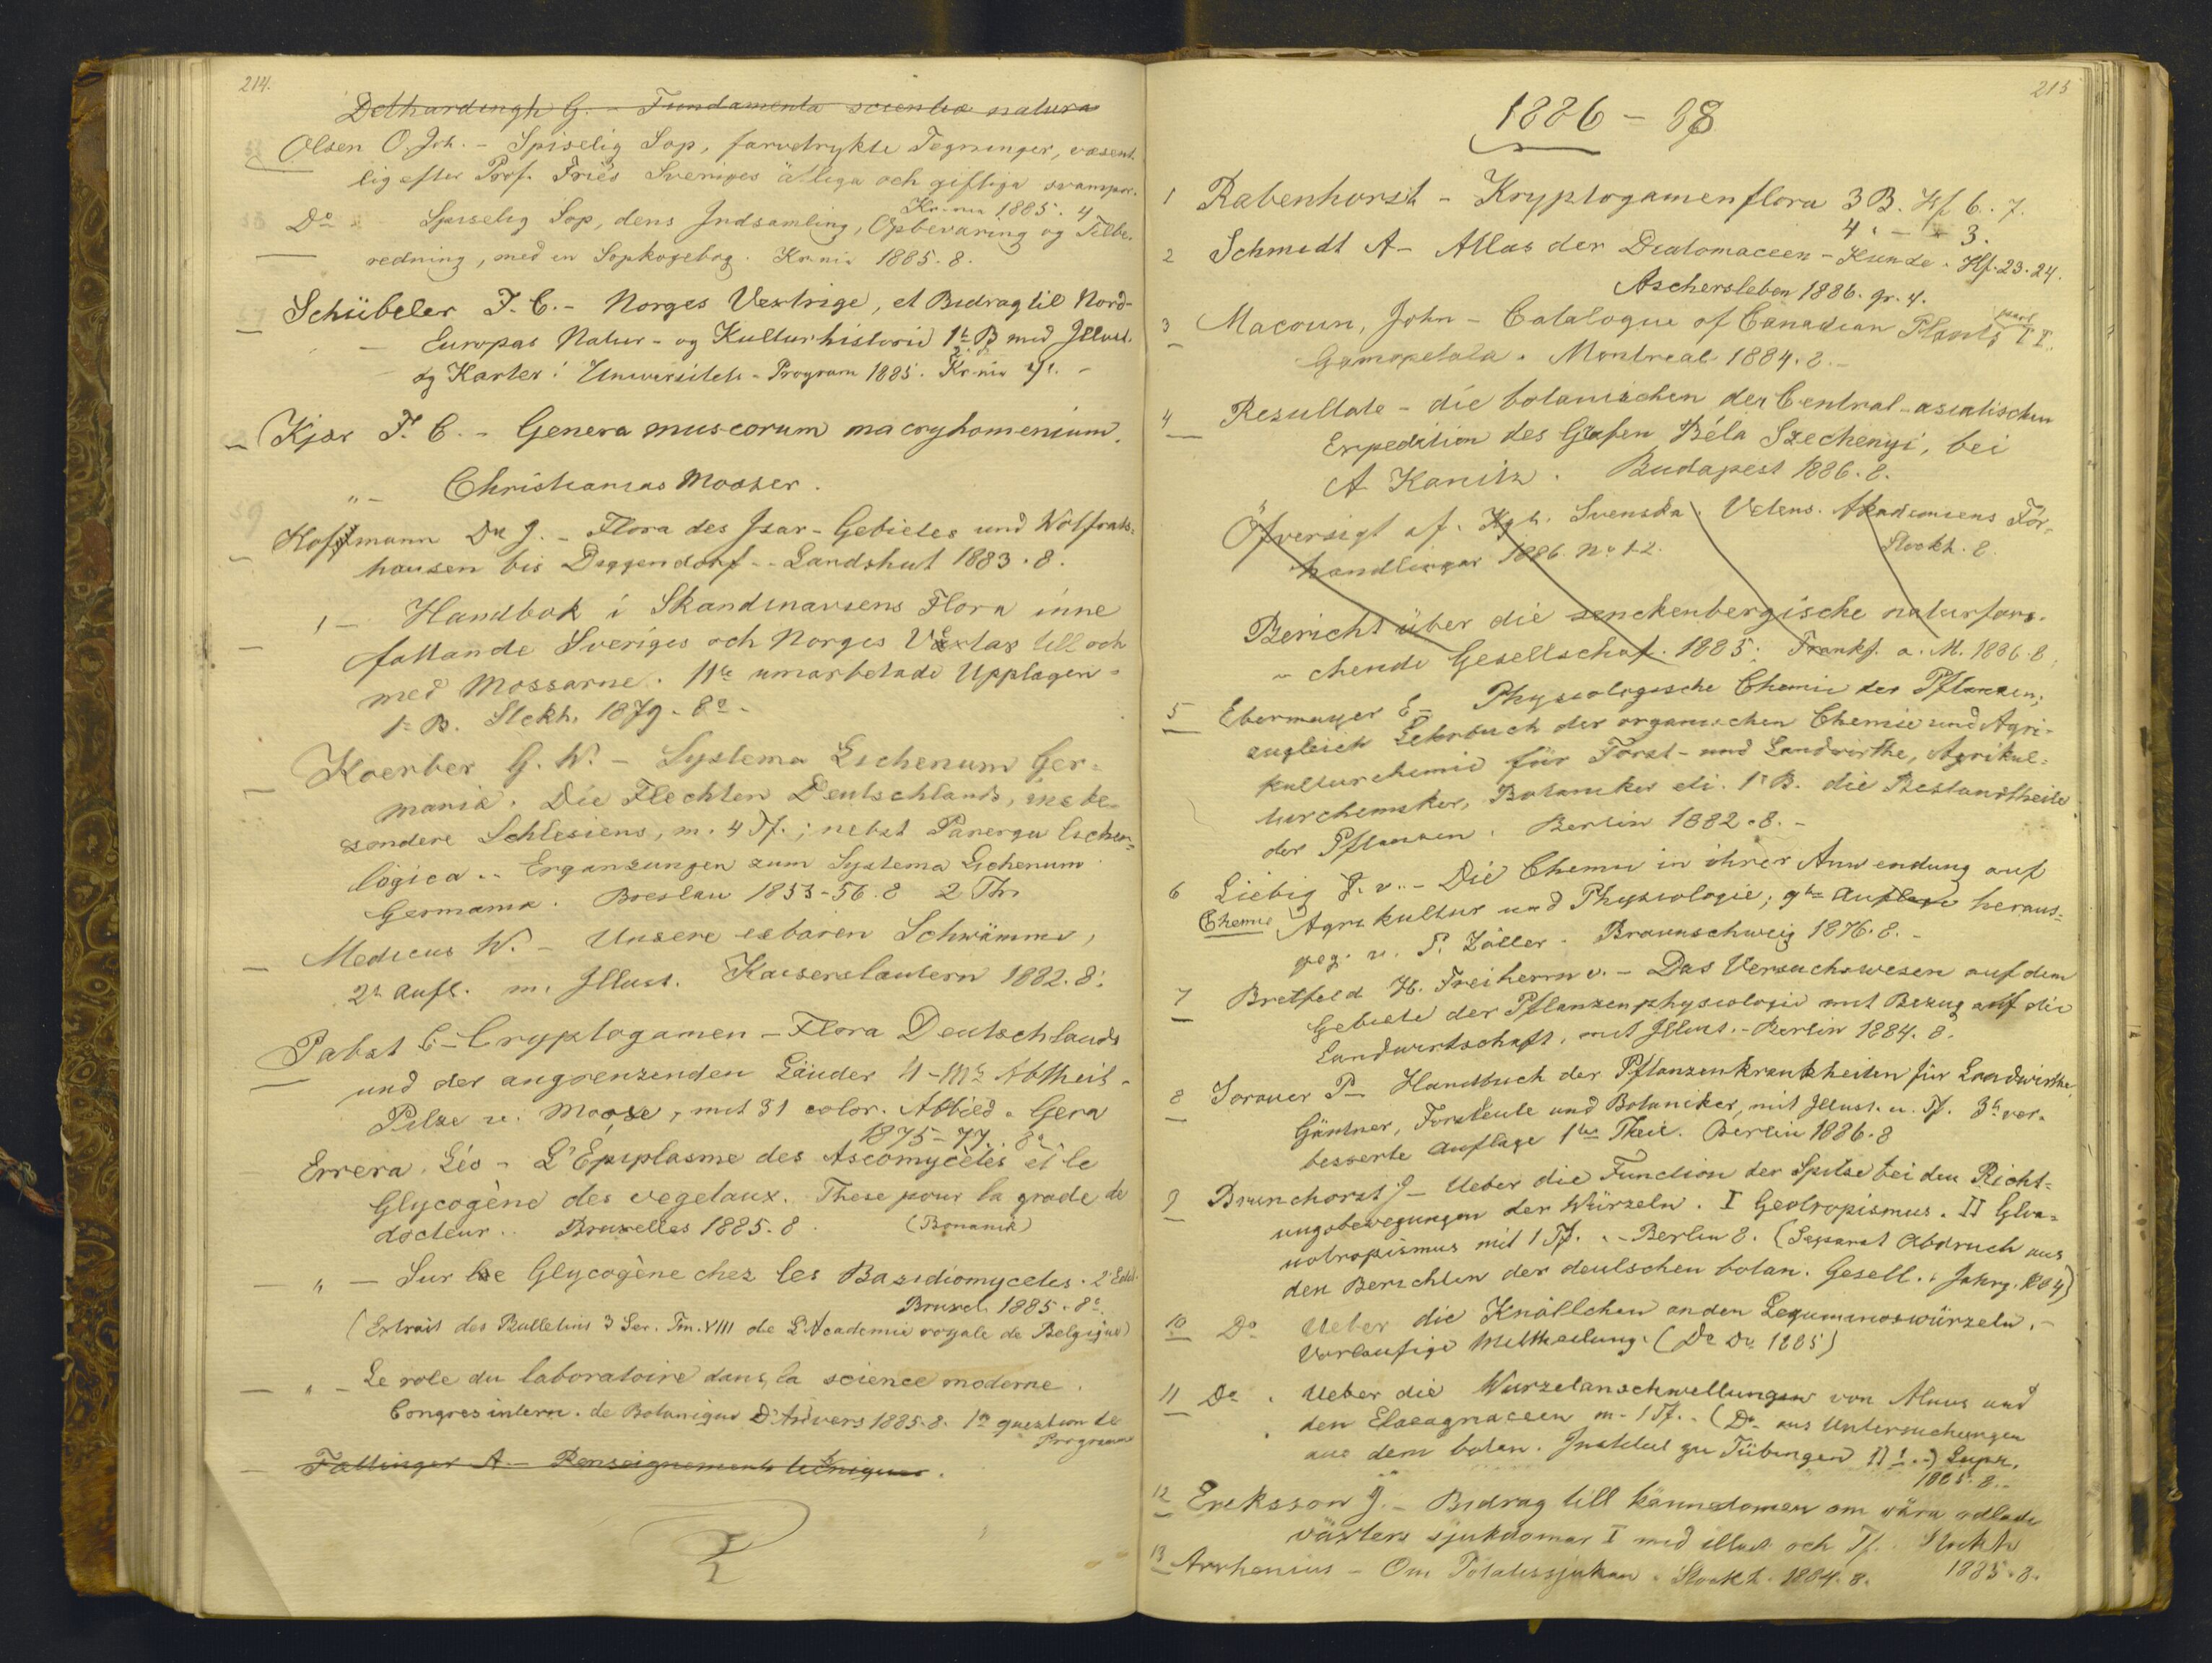 214.
Dethardingh G. - Fundamenta scientiæ natura
Olsen O. Joh. - Spiselig Sop, farvetrykte Tegninger, væsent-
lig efter Prof. Fries Sveriges ätliga och giftiga svampar.
Kr.nia 1885. 4
Do - Spiselig Sop, dens Indsamling, Opbevaring og Tilbe-
redning, med en Sopkogebog. Kr.nia 1885. 8.
Schübeler F. C. - Norges Væxtrige, et Bidrag til Nord-
Europas Natur- og Kulturhistorie 1te B med Illust.
og Karter: Universitets-Program 1885. Kr.nia
Kjær F. C. - Genera muscorum macryhomenium.
" - Christianias Mosser.
Hoffmann Dr J. - Flora des Isar-Gebietes und Wolfrats-
hausen bis Deggendorf - Landshut 1883. 8.
1 - Handbok i Skandinaviens Flora inne
fattande Sveriges och Norges Vextar till och
med Mossarne. 11te umarbetade Upplagen -
1e B. Stckh. 1879. 8o -
Koerber G. W. - Systema Lichenum Ger-
maniæ. Die Flechten Deutschlands, insbe-
sondere Schlesiens, m. 4 Tf.; nebst Parerga lichen-
logica .. Ergänzungen zum Systema Lichenum
Germania. Breslau 1853-56. 8 2 Th.
Medicus W. - Unsere esbaren Schwämme,
2te Aufl. m. Illust. Kaiserslautern 1882. 8.
Pabst C - Cryptogamen - Flora Deutschlands
und der angrenzenden Länder II-IIIte Abtheil-
Pilze u. Moose, mit 31 color. Abbild. Gera
1875-77. 8o
Errera, Léo - L'Épiplasme des Ascomycètes et le
Glycogène des vegetaux. These pour la grade de
docteur .. Bruxelles 1885. 8.
" - Sur le Glycogène chez les Basidiomycetes. 2e Edd.
Bruxel. 1885. 8o.
(Extrait des Bulletins 3 Ser. Tm. VIII de L'Academie royale de Belgique)
" - Le role du laboratoire dans, la science moderne.
Congres intern. de Botanique D'Anvers 1885. 8. 1e question de
Programme
Fallinger A - Renseignements techniques.
215
1886 - 88
1 Rabenhorst - Kryptogamenflora 3 B. Hf 6. 7.
4 " - " 3.
2 Schmidt A - Atlas der Diatomaceen-Kunde. Hf. 23. 24.
Aschersleben 1886. gr. 4.
3 Macoun, John - Catalogue of Canadian Plants part II.
Gamopetala. Montreal 1884. 8. -
4 Resultate - die botanischen der Central-asiatischen
Expedition des Grafen Béla Szechenyi, bei
A Kanitz. Budapest 1886. 8.
Öfversigt af. Kgl. Svenska Vetens. Akademiens För-
handlingar 1886. No 1-2. Stockh. 8.
Bericht über die senckenbergische naturfors-
chende Gesellschaf. 1885. Frankf. a. M. 1886. 8.
5 Ebermayer E - Physiologische Chemie der Pflanzen,
zugleich Lehrbuch der organischen Chemie und Agri-
kulturchemie für Forst- und Landwirthe, Agrikul-
turchemiker, Botaniker etc. 1r B. die Bestandtheile
der Pflanzen. Berlin 1882. 8. -
6 Liebig J. v. - Die Chemie in ihrer Anwendung auf
Chemie Agrikultur und Physiologie; 9te Auflage heraus-
geg. v. P. Zöller. Braunschweig 1876. 8. -
7 Bretfeld H. Freiherrn v. - Das Versuchswesen auf dem
Gebiete der Pflanzenphysiologie mit Bezug auf die
Landwirtschaft, mit Illust. - Berlin 1884. 8.
8 Sorauer P - Handbuch der Pflanzenkrankheiten für Landwirthe,
Gärtner, Forstleute und Botaniker, mit Illust. u. Tf. 3te ver-
besserte Auflage 1tes Theil. Berlin 1886. 8
9 Brunchorst J - Ueber die Function der Spitse bei den Richt-
ungsbewegungen der Würzeln. I Geotropismus. II Glva-
notropismus mit 1 Tf. - Berlin 8. (Separat Abdruch aus
den Berichten der deutschen botan. Gesell. Jahrg. 1884)
10 Do Ueber die Knöllchen an den Leguminoswürzeln. -
Vorlaufige Mittheilung. (Do Do 1885)
11 Do. Ueber die Wurzelanschwellungen von Alnus und
den Elaeagnaceen m. 1 Tf. - (Do aus Untersuchungen
aus dem botan. Institut zu Tübingen II 1.) Leipz.
1885. 8. -
12 Ericksson J. - Bidrag till kännedomen om våra odlade
växters sjukdomar I med illust och Tf. Stockh
1885. 8.
13 Arrhenius - Om Potatissjukan. Stockh. 1884. 8.